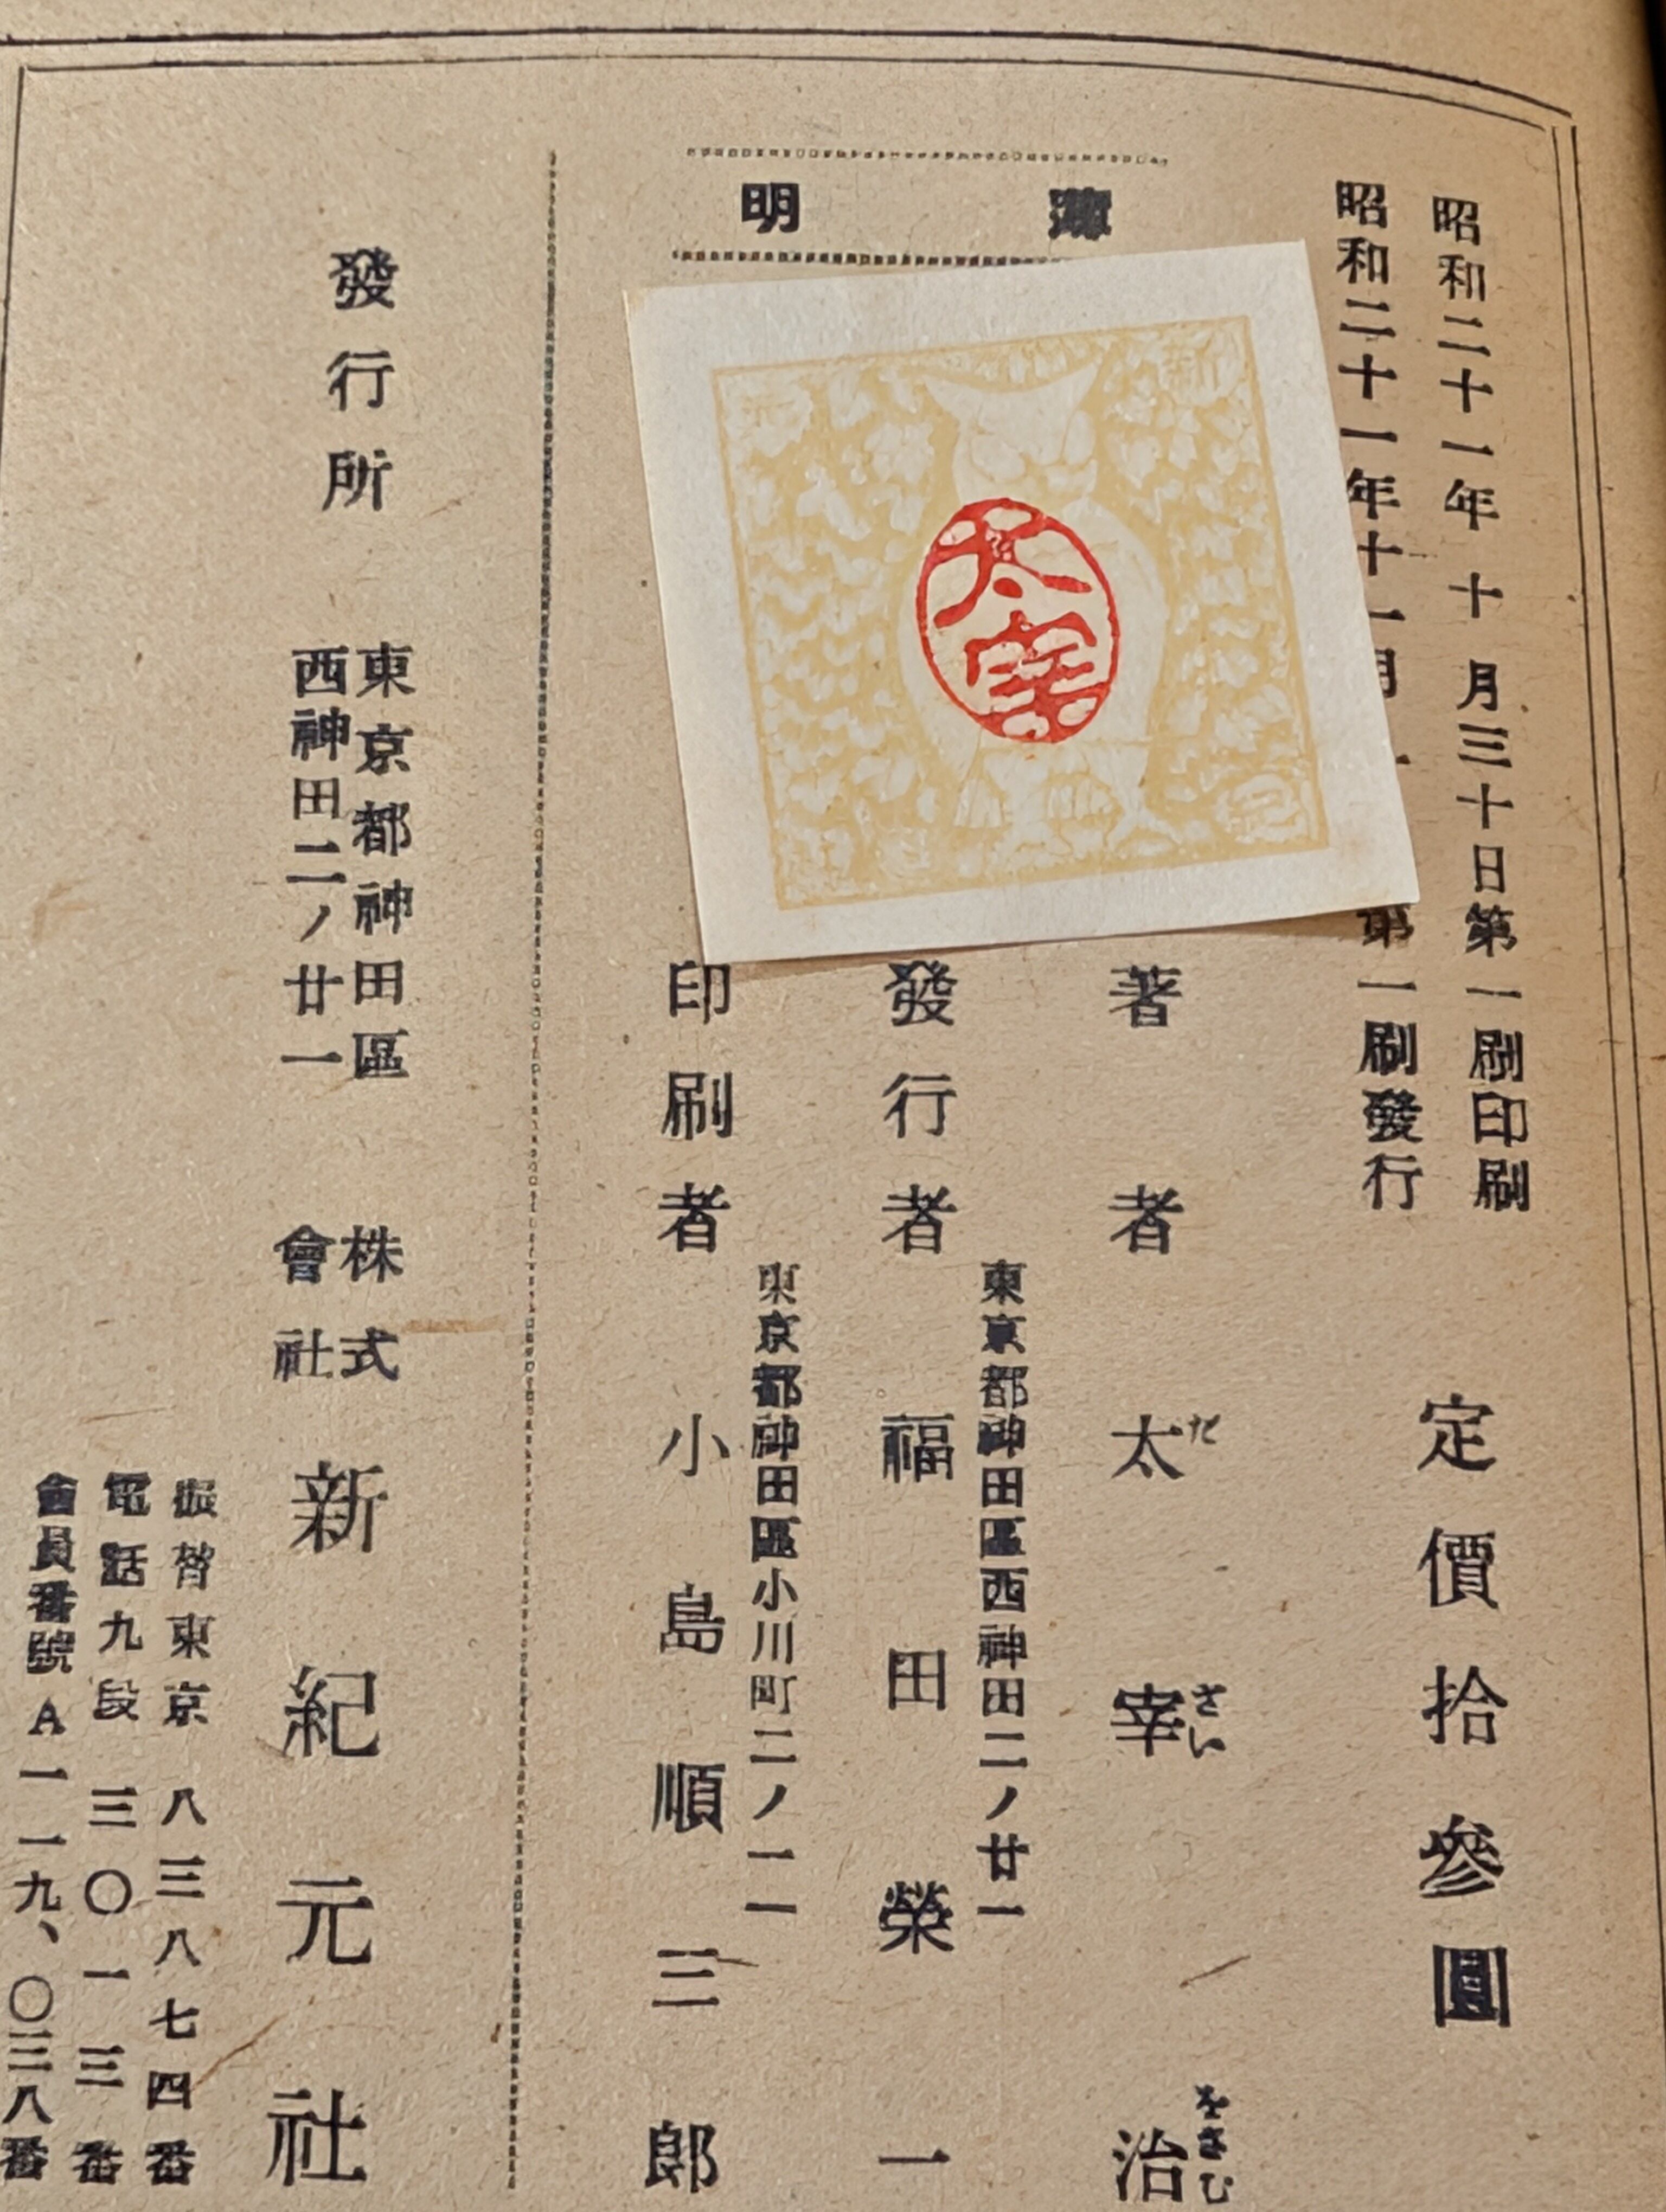 昭和二十一年十月三十日第一刷印刷
昭和二十一年十一月
第一刷發行
定價拾參圓
薄明
新
紀
元
社
太宰
著者 太宰治
だざいをさむ
發行者
東京都神田區西神田二ノ廿一
福田榮一
印刷者
東京都神田區小川町二ノ一二
小島順三郎
發行所
東京都神田區
西神田二ノ廿一
株式
會社
新紀元社
振替東京八三八七四番
電話九段三〇一三番
會員番號A一一九、〇三八番